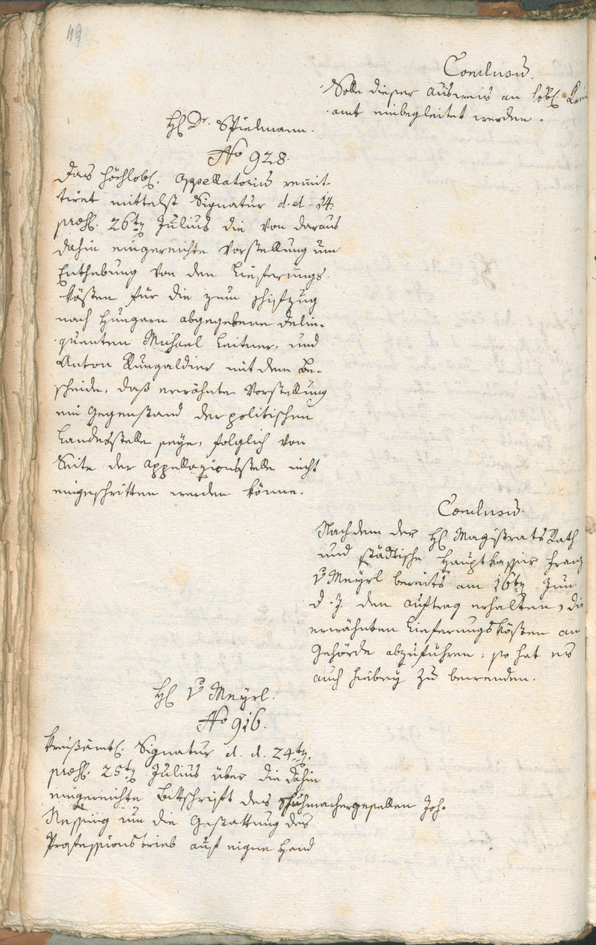 49
Conclusum.
Solle dieser Ausweis an löbl.
amt einbegleitet werden.
H: Dr. Spielmann.
No 928.
Das Höchlobl. Appellatorium remit-
tiret mittelst Signatur d. d. 14
praes. 26ten Julius die von daraus
dahin eingereichte Vorstellung um
Enthebung von den Lieferungs-
kösten für die zum Schifzug
nach Hungarn abgegebene Delin-
quenten Michael Leitner, und
Anton Rungaldier mit dem Be-
scheide, daß erwähnte Vorstellung
ein Gegenstand der politischen
Landesstelle seye, folglich von
Seite der Appellazionsstelle nicht
eingeschritten werden könne.
Conclusum.
Nachdem der H: Magistrats Rath
und städtische Hauptkassier Franz
v Meyrl bereits am 16ten Jun
d. J. den Auftrag erhalten, die
erwähnten Lieferungskösten an
Gehörde abzuführen, so hat es
auch hiebey zu bewenden.
H: v Meyrl.
No 916.
Kreisämtl. Signatur d. d. 24ten,
praes. 25ten Julius über die dahin
eingereichte Bittschrift des Schuhmachergesellen Joh.
Nessing um die Gestattung des
Professionstrieb auf eigne Hand